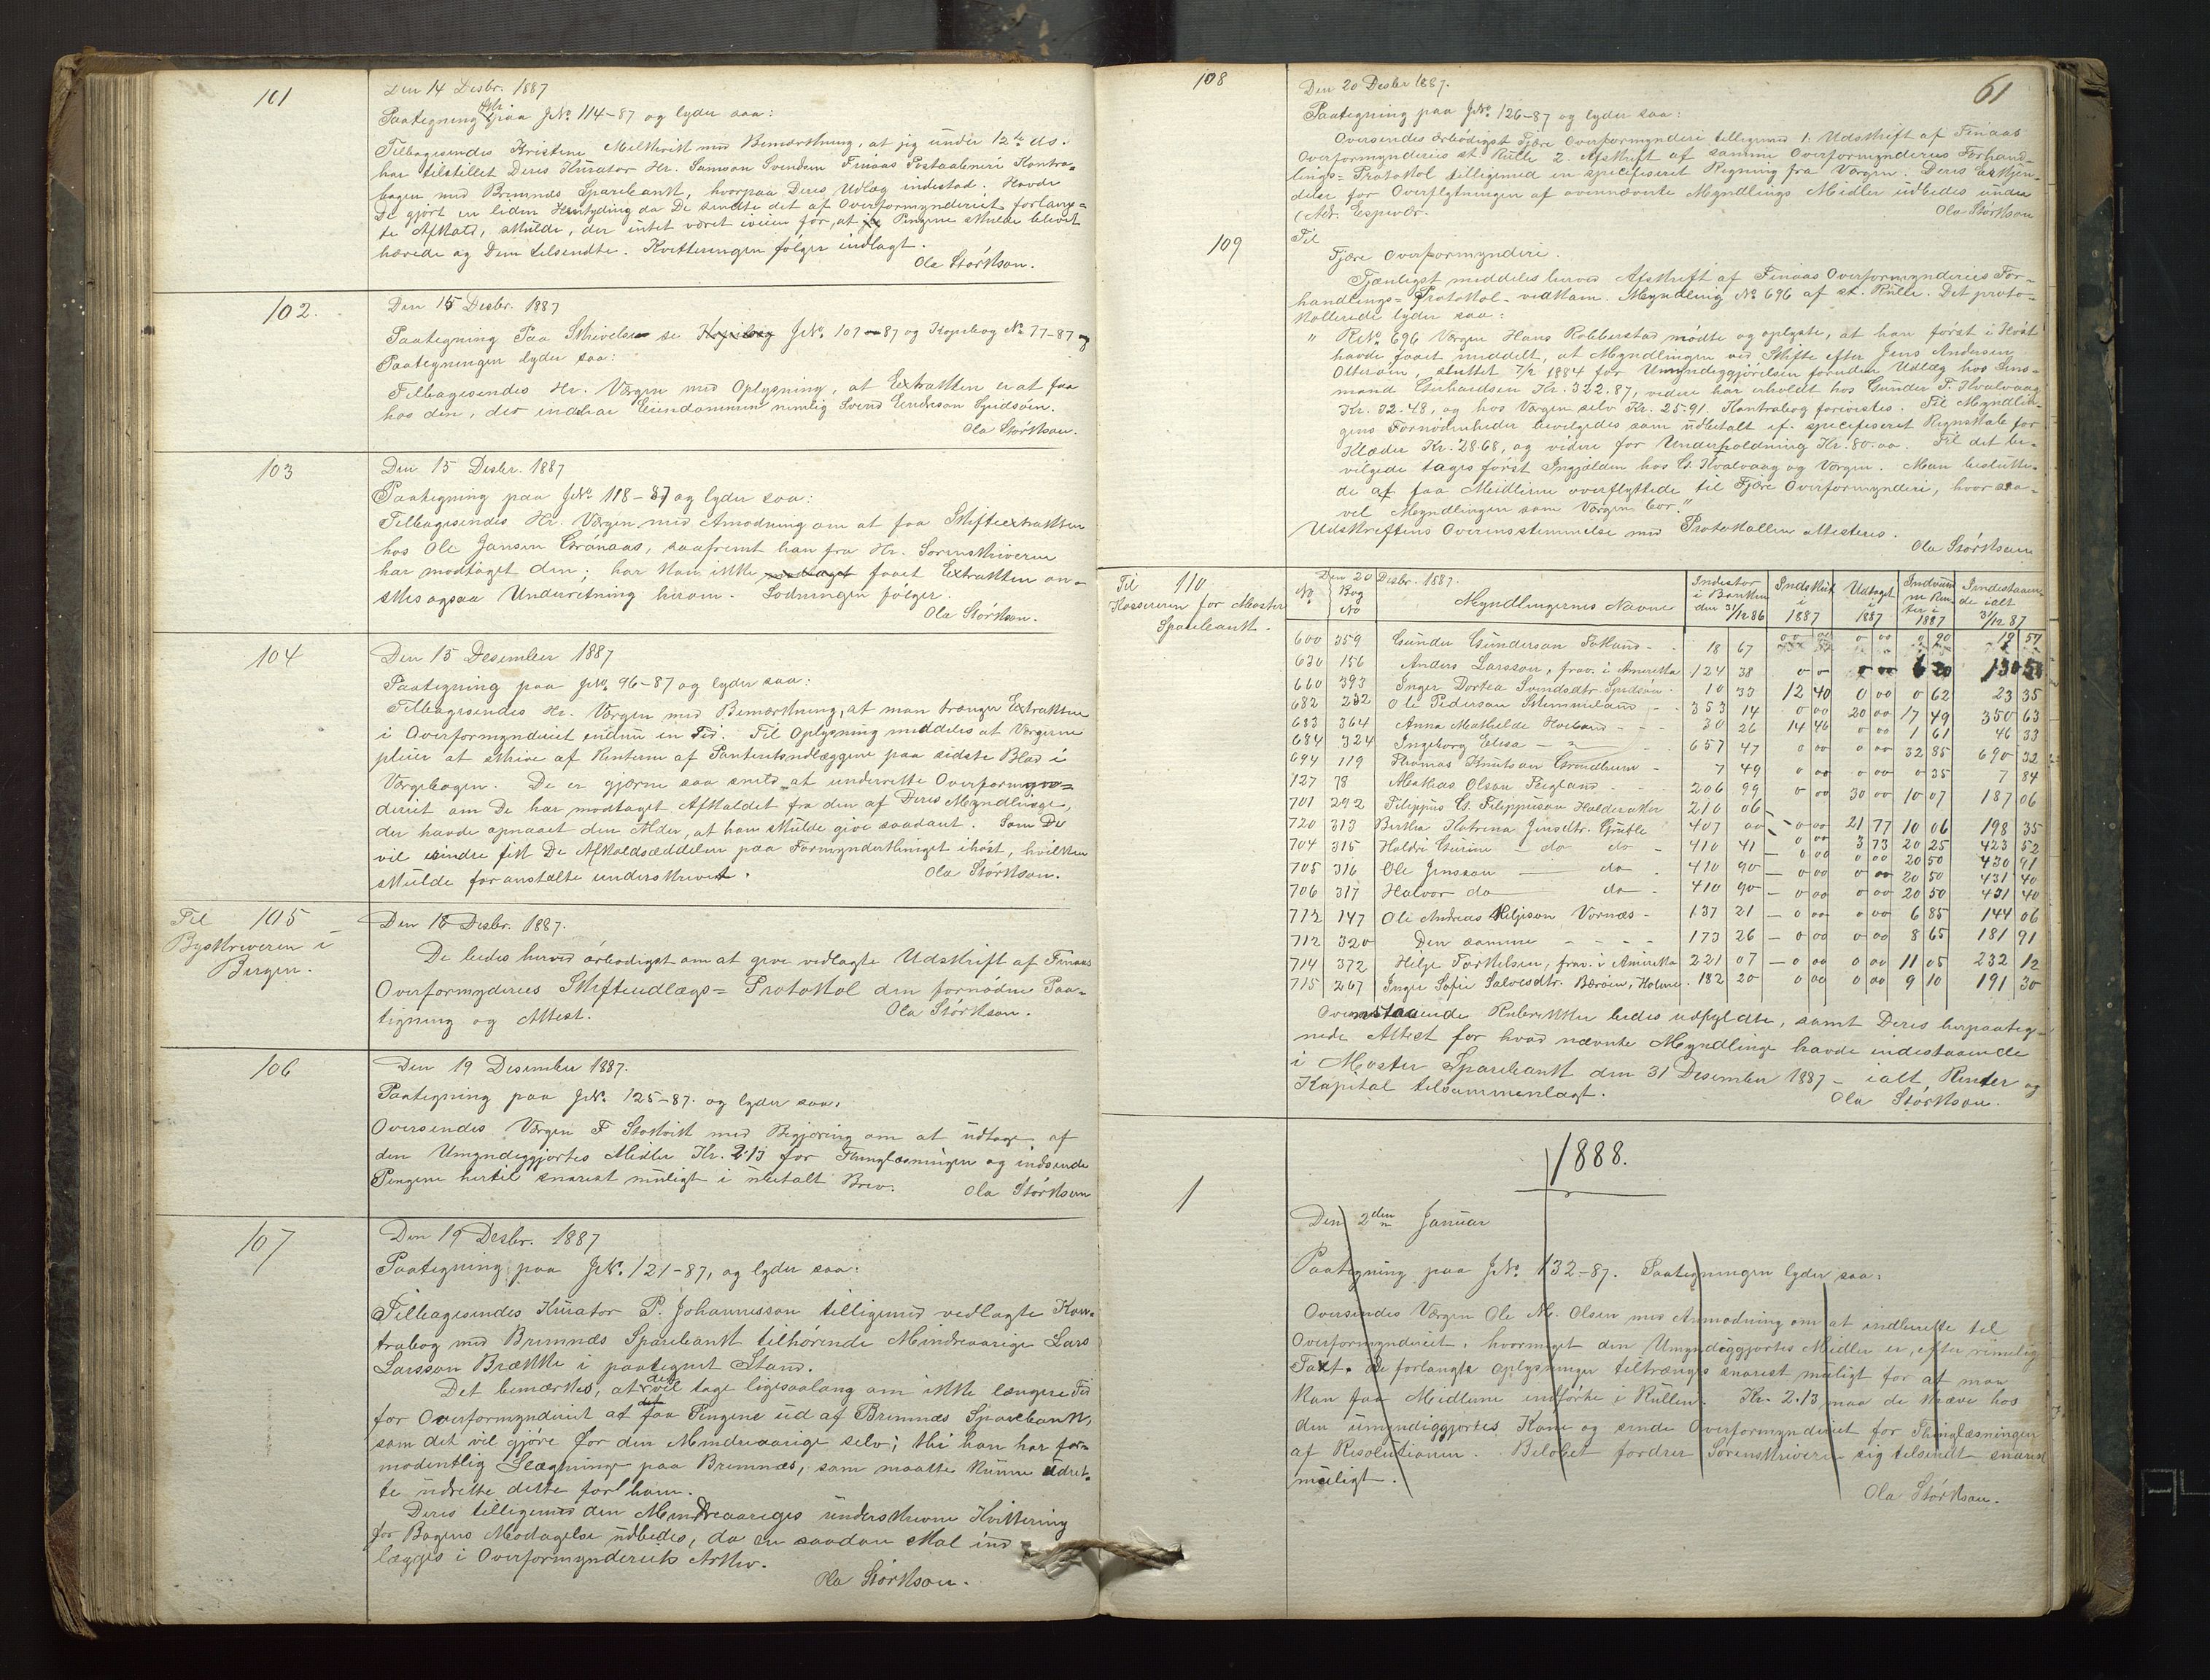 101
Den 14 Desbr. 1887
Paategning paa JNo. 114-87 og lyder saa:
Tilbagesendes Kristine Melkevik med Bemærkning, at jeg under 12te ds.
har tilstillet Deres Kurator Hr. Samson Svendsen Finaas Postaabneri Kontra-
bogen med Bremnæs Sparebank, hvorpaa Deres Udlæg indestod. Havde
De gjort en liden Hentyding da De sendte det af Overformynderiet forlang-
te Afkald, skulde, der intet været iveien for, at Pengene skulde blevet
hævede og Dem tilsendte. Kvitteringen følger indlagt.
Ola Størkson.
102.
Den 15 Desbr. 1887
Paategning Paa Skrivelse se Kopibog JNo. 107-87 og Kopibog No 77-87 og
Paategningen lyder saa:
Tilbagesendes Hr. Værgen med Oplysning, at Extrakten er at faa
hos den, der indehar Eiendommen nemlig Svend Endreson Spidsøen.
Ola Størkson.
103
Den 15 Desbr. 1887
Paategning paa JNo. 118-87 og lyder saa:
Tilbagesendes Hr. Værgen med Amodning om at faa Skifteextrakten
hos Ole Jansen Grønaas, saafremt han fra Hr. Sorenskriveren
har modtaget den; har han ikke modtaget faaet Extrakten øn-
skes ogsaa Underretning herom. Lodningen følger.
Ola Størkson.
104
Den 15 Desember 1887
Paategning paa JNo. 96-87 og lyder saa:
Tilbagesendes Hr. Værgen med Bemærkning, at man trænger Extrakten
i Overformynderiet endnu en Tid. Til Oplysning meddeles at Værgerne
pleier at skrive af Renterne af Panteudlæggene paa sidste Blad i
Værgebogen. De er gjerne saa snild at underrette Overformyn-
deriet om De har modtaget Afkaldet fra den af Deres Myndlinge,
der havde opnaaet den Alder, at han skulde give saadant. Som De
vil erindre fik De Afkaldsæddelen paa Formynderthinget ihøst, hvilken
skulde foranstalte underskrevet.
Ola Størkson.
Til 105
Byskriveren i
Bergen.
Den 18 Desbr. 1887.
De bedes herved ærbødigst om at give vedlagte Udskrift af Finaas
Overformynderies Skifteudlægs= Protokol den fornødne Paa-
tegning og Attest.
Ola Størkson.
106
Den 19 Desember 1887.
Paategning paa JNo. 125-87. og lyder saa:
Oversendes Værgen F Stokvik med Begjæring om at udtage af
den Umyndiggjortes Midler Kr. 2.13 for Thinglæsningen og indsende
Pengene hertil snarest muligt i ubetalt Brev.
Ola Størkson
107
Den 19 Desbr. 1887
Paategning paa JNo. 121-87, og lyder saa:
Tilbagesendes Kurator P. Johannesson tilligemed vedlagte Kon-
trabog med Bremnæs Sparebank tilhørende Mindreaarige Lars
Larsson Brække i paategnet Stand.
Det bemærkes, at det vil tage ligesaalang om ikke længere Tid
for Overformynderiet at faa Pengene ud af Bremnæs Sparebank,
som det vil gjøre for den Mindreaarige selv; thi han har for-
modentlig Slægtninge paa Bremnæs, som maatte kunne udret-
te udrette dette for ham.
Deres tilligemed den Mindreaariges underskrevne Kvittering
for Bogens Modagelse udbedes, da en saadan skal ind
lægges i Overformynderiets Arkiv.
Ola Størkson.
61
108
Den 20 Desbr 1887.
Paategning paa JNo. 126-87 og lyder saa:
Oversendes ærbødigst Fjære Overformynderi tilligemed 1. Udskrift af Finaas
Overformynderies st. Rulle 2. Afskrift af samme Overformynderies Forhand-
lings= Protokol tilligemed en specifiseret Regning fra Værgen. Deres Erkjen-
delse for Overflytningen af ovennævnte Myndlings Midler udbedes under
Adr. Espevær.
Ola Størkson
109
Til
Fjære Overformynderi.
Tjenligst meddeles herved Afskrift af Finaas Overformynderies For-
handlings= Protokol vedkom. Myndling No 696 af st. Rulle. Det proto-
kollerede lyder saa:
" RNo. 696 Værgen Hans Robberstad mødte og oplyste, at han først i Høst
havde faaet meddelt, at Myndlingen ved Skifte efter Jens Andersen
Otterøen, sluttet 7/2 1884 før Umyndiggjørelsen foruden Udlæg hos Ens-
mand Gerhardsen Kr. 322.87, videre har erholdt hos Gunder T. Kvalvaag
Kr. 32.48, og hos Værgen selv Kr. 25.91. Kontrabog forevistes. Til Myndlin-
gens Fornødenheder bevilgedes som udbetalt if. specifiseret Regnskab for
Klæder Kr. 28.68, og videre for Underholdning Kr. 80.00. Til det be-
vilgede tages først Ingjælden hos G. Kvalvaag og Værgen. Man beslutte-
de at faa Midlerne overflyttede til Fjære Overformynderi, hvor saa-
vel Myndlingen som Værgen bor."
Udskriftens Overensstemmelse med Protokollen attesteres.
Ola Størkson
Til 110
Kassereren for Moster
Sparebank.
Den 20 Desbr. 1887.
No Bog No Myndlingernes Navne Indestod i Banken den 31/12 86 Indskud i 1887 Udtaget i 1887 Indvundne Renter i 1887 Indestaaende ialt 31/12 87
600 359 Gunder Gunderson Folkund - 18 67 00 00 0 00 0 90 19 57
630 156 Anders Larsson, frav. i Amerikka 124 38 0 0 0 00 6 20 130 58
660 393 Inger Dortea Svendsdtr. Spidsøen - 10 33 12 40 0 00 0 62 23 35
682 232 Ole Pederson Skimmeland - 353 14 0 00 20 00 17 49 350 63
683 364 Anna Mathilde Hovland - 30 26 14 46 0 00 1 61 46 33
684 324 Ingeborg Elisa - " - 657 47 0 00 0 00 32 85 690 32
694 119 Thomas Knutson Grindheim - 7 49 0 00 0 00 0 35 7 84
127 78 Mathias Olson Teigland - 206 99 0 00 30 00 10 07 187 06
701 292 Filippus G. Filippuson Halderaker 210 06 - 0 00 21 77 10 06 198 35
720 313 Bertha Katrina Jensdtr. Grutle 407 00 - 0 00 3 73 20 25 423 52
704 315 Haldri Gurine - do do - 410 41 - 0 00 0 00 20 50 430 91
705 316 Ole Jensson - do - 410 90 - 0 00 0 00 20 50 431 40
706 317 Halvor do do - 410 90 - 0 00 0 00 20 50 431 40
712 147 Ole Andreas Heljeson Vornæs - 137 21 - 0 00 0 00 6 85 144 06
712 320 Den samme - - - 173 26 - 0 00 0 00 8 65 181 91
714 372 Helje Torkelsen, frav. i Amerikka 221 07 - 0 00 0 00 11 05 232 12
715 267 Inger Sofie Salvesdtr. Bærøen, Holme. 182 20 0 00 0 00 9 10 191 30
Ovenstaaende Rubrikker bedes udfyldte, samt Deres herpaateg-
nede Attest for hvad nævnte Myndlinge havde indestaaende
i Moster Sparebank den 31 Desember 1887 - ialt, Renter og
Kapital tilsammenlagt.
Ola Størkson.
1888.
1
Den 2den Januar
Paategning paa JNo. 132-87. Paategningen lyder saa:
Oversendes Værgen Ole M. Olsen med Anmodning om at indberette til
Overformynderiet, hvormeget den Umyndiggjortes Midler er, efter rimelig
Taxt. De forlangte Oplysninger tiltrænges snarest muligt for at man
kan faa Midlerne indførte i Rullen. Kr. 2.13 maa de kræve hos
den umyndiggjortes Kone og sende Overformynderiet for Thinglæsningen
af Resolutionen. Beløbet fordrer Sorenskriveren sig tilsendt snarest
muligt.
Ola Størkson.